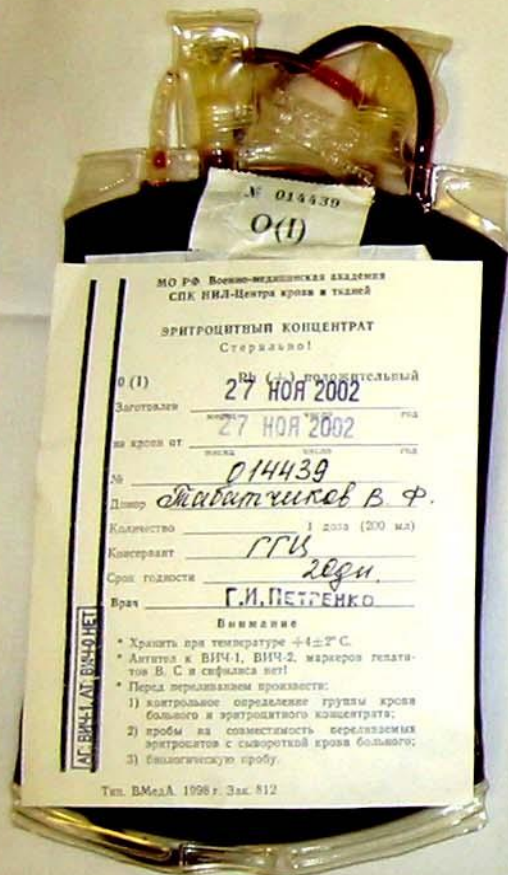 № 014439
O(I)
МО РФ Военно-медицинская академия
СПК НИЛ-Центра крови и тканей
ЭРИТРОЦИТНЫЙ КОНЦЕНТРАТ
Стерильно!
0 (I) Rh (+) положительный
Заготовлен 27 НОЯ 2002
месяц число год
из крови от 27 НОЯ 2002
месяц число год
№ 014439
Донор В. Ф.
Количество 1 доза (200 мл)
Консервант ГГЦ
Срок годности 20дн.
Врач Г.И.ПЕТРЕНКО
Внимание
* Хранить при температуре +4±2° С.
* Антител к ВИЧ-1, ВИЧ-2, маркеров гепати-
тов В, С и сифилиса нет!
* Перед переливанием произвести:
1) контрольное определение группы крови
больного и эритроцитного концентрата;
2) пробы на совместимость переливаемых
эритроцитов с сывороткой крови больного;
3) биологическую пробу.
Тип. ВМедА. 1998 г. Зак. 812
АГ. ВИЧ-1, АТ. ВИЧ-О НЕТ